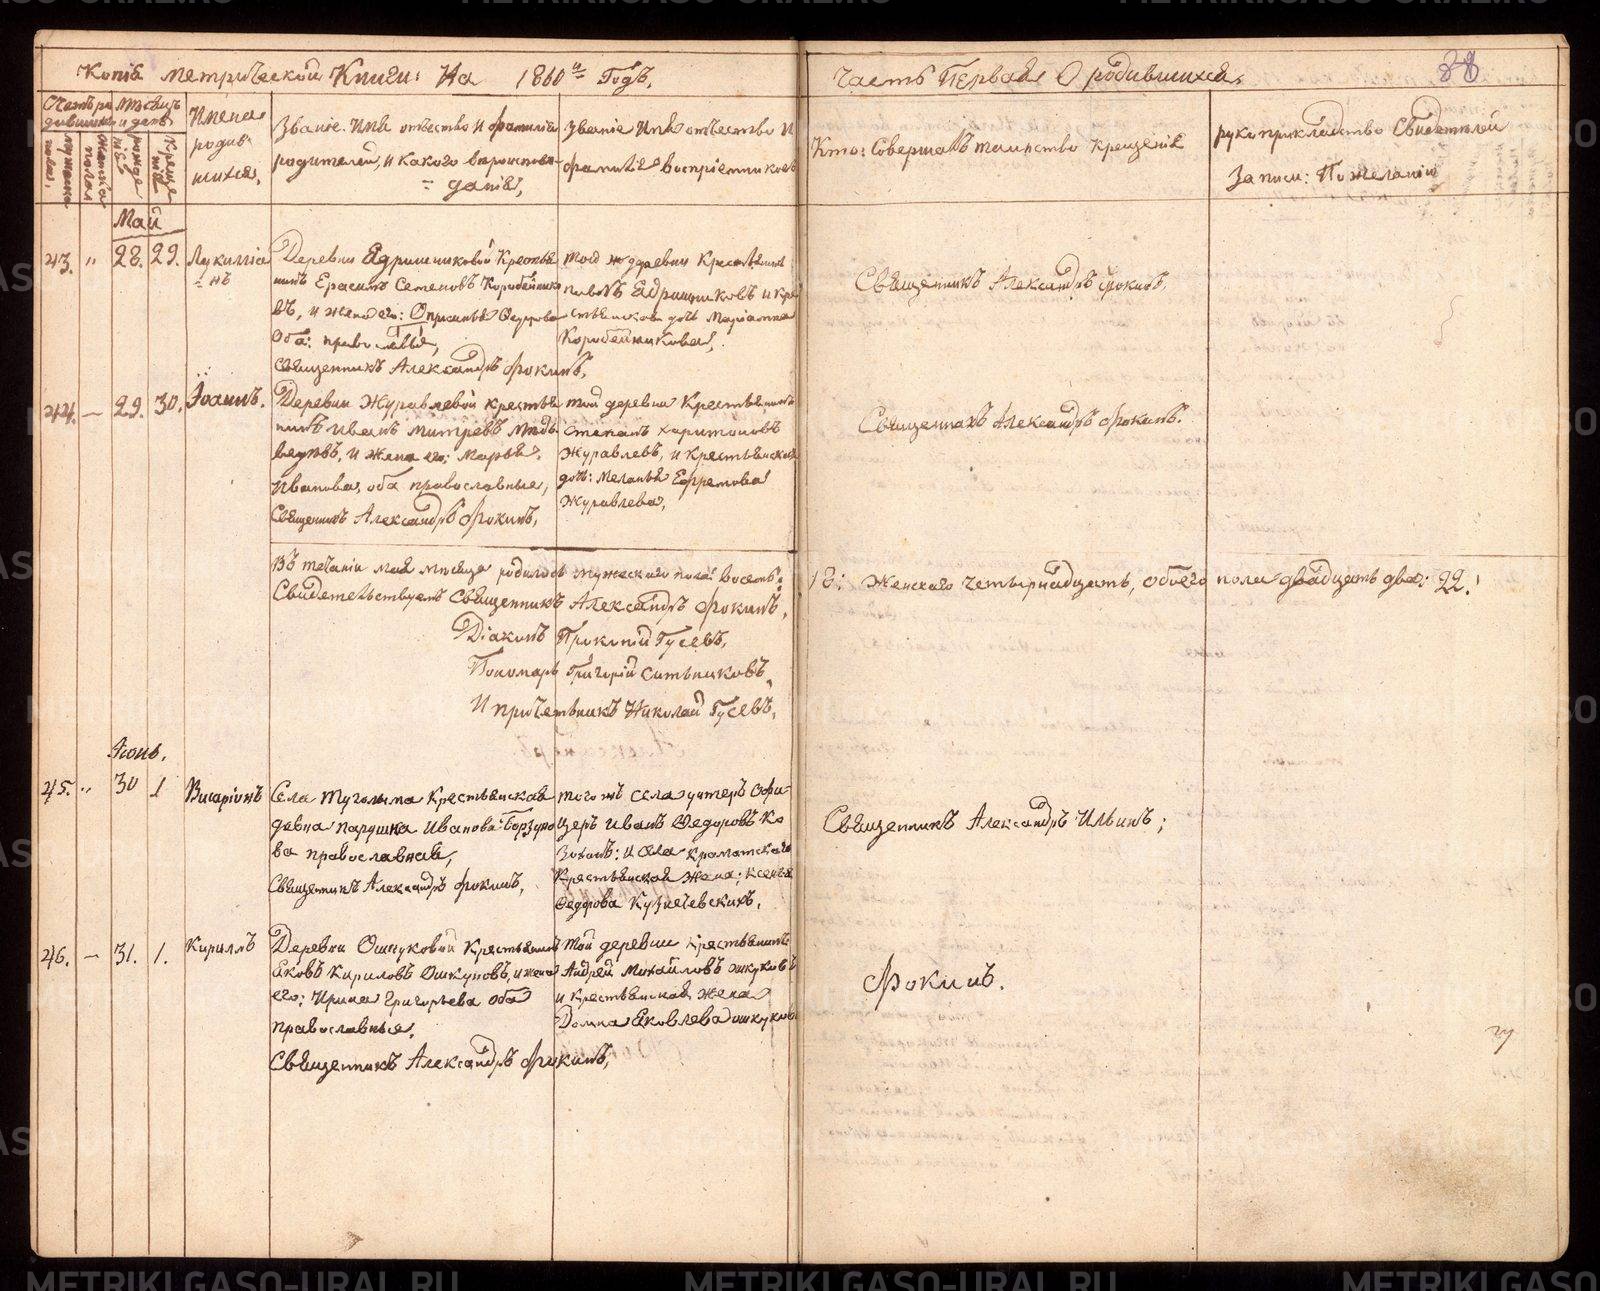 Копія метрической Книги: На 1860й Годъ,
Часть Первая О родившихся,
Счетъ ро
дившихся
мужеска
полов.
женска
полов
Мѣсяцъ
и день
рожде
нія
Креще
нія
Имена
родив
шихся,
Званіе. Имя отчество и фамилія
родителей, и какого вѣроисповѣ-
данія,
Званіе Имя отчество и
фамилія воспріемниковъ
Кто: Совершалъ таинство Крещенія
рукоприкладство Свидѣтелей
Записи: По желанію
Май
43. " 28. 29. Лукилліа
нъ
Деревни Ядришниковой Крестья
нинъ Ерасимъ Семеновъ Коробейнико
въ, и жена его: Опросинья Федорова
Оба: православные,
Священникъ Александръ Фокинъ,
той же деревни Крестьянинъ
Ядришниковъ и кре
стьянская дочь Маріамна
Коробейникова,
Священникъ Александръ Фокинъ.
44. — 29. 30. Іоаннъ.
Деревни Журавлевой крестья
нинъ Иванъ Митревъ Мѣдь
ведевъ, и Жена его: Марья.
Иванова, оба православные,
Священникъ Александръ Фокинъ,
той деревни Крестьянинъ
Степанъ Харитоновъ
Журавлевъ, и Крестьянская
дочь: Меланья Ефремова
Журавлева,
Священникъ Александръ Фокинъ.
Въ теченіи мая мѣсяце родилось мужескаго пола: восемь:
18: Женскаго четырнадцать, обоего пола двадцать два: 22.
Свидетельствуемъ Священникъ Александръ Фокинъ,
Діаконъ Прокопій Гусевъ,
Пономарь Григорій Ситниковъ
И причетникъ Николай Гусевъ,
Іюнь.
45. " 30 1 Висаріонъ
Села Тугулыма Крестьянская
девка Парушка Иванова Борзуно
ва православная,
Священникъ Александръ Фокинъ,
того жъ села унтеръ Офи-
церъ Иванъ Федоровъ Ко
и села
Крестьянская жена; Ксенья
Федорова Кузнечевскихъ.
Священникъ Александръ Ильинъ;
46. — 31. 1. Кириллъ
Деревни Ошкуковой Крестьянинъ
Яковъ Кириловъ Ошкуковъ, и жена
его: Ирина Григорьева оба
православные.
Священникъ Александръ Фокинъ,
той деревни крестьянинъ
Андрей Михайловъ Ошкуковъ
и крестьянская жена
Домна Яковлева ошкукова
Фокинъ.
METRIKI.GASO-URAL.RU